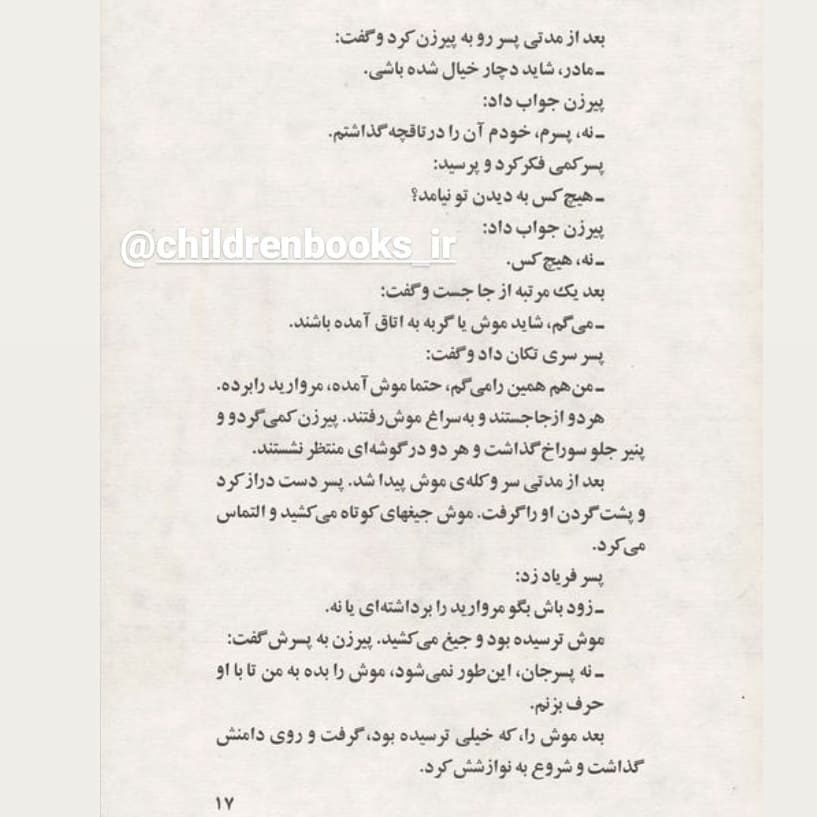 بعد از مدتی پسر رو به پیرزن کرد و گفت:
ـ مادر، شاید دچار خیال شده باشی.
پیرزن جواب داد:
ـ نه، پسرم، خودم آن را در تاقچه گذاشتم.
پسر کمی فکر کرد و پرسید:
ـ هیچ کس به دیدن تو نیامد؟
پیرزن جواب داد:
@childrenbooks_ir
ـ نه، هیچ کس.
بعد یک مرتبه از جا جست و گفت:
ـ می‌گم، شاید موش یا گربه به اتاق آمده باشند.
پسر سری تکان داد و گفت:
ـ من هم همین را می‌گم، حتما موش آمده، مروارید را برده.
هر دو از جا جستند و به سراغ موش رفتند. پیرزن کمی گردو و
پنیر جلو سوراخ گذاشت و هر دو در گوشه‌ای منتظر نشستند.
بعد از مدتی سر و کله‌ی موش پیدا شد. پسر دست دراز کرد
و پشت گردن او را گرفت. موش جیغهای کوتاه می‌کشید و التماس
می‌کرد.
پسر فریاد زد:
ـ زود باش بگو مروارید را برداشته‌ای یا نه.
موش ترسیده بود و جیغ می‌کشید. پیرزن به پسرش گفت:
ـ نه پسرجان، این‌طور نمی‌شود، موش را بده به من تا با او
حرف بزنم.
بعد موش را، که خیلی ترسیده بود، گرفت و روی دامنش
گذاشت و شروع به نوازشش کرد.
۱۷